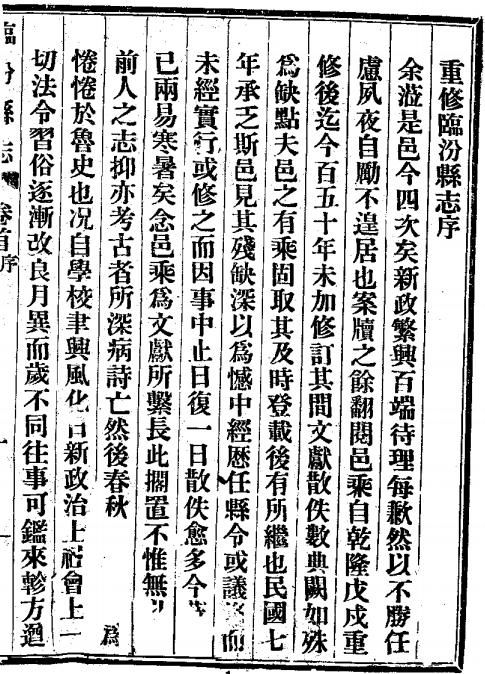 重修臨汾縣志序
余蒞是邑今四次矣新政繁興百端待理每歉然以不勝任
慮夙夜自勵不遑居也案牘之餘翻閱邑乘自乾隆戊戌重
修後迄今百五十年未加修訂其間文獻散佚數典闕如殊
爲缺點夫邑之有乘固取其及時登載後有所繼也民國七
年承乏斯邑見其殘缺深以爲憾中經歷任縣令或議修而
未經實行或修之而因事中止日復一日散佚愈多今
已兩易寒暑矣念邑乘爲文獻所繫長此擱置不惟無
前人之志抑亦考古者所深病詩亡然後春秋　爲
惓惓於魯史也况自學校聿興風化日新政治上社會上一
切法令習俗逐漸改良月異而歲不同往事可鑑來軫方遒
臨汾縣志　卷首序　一